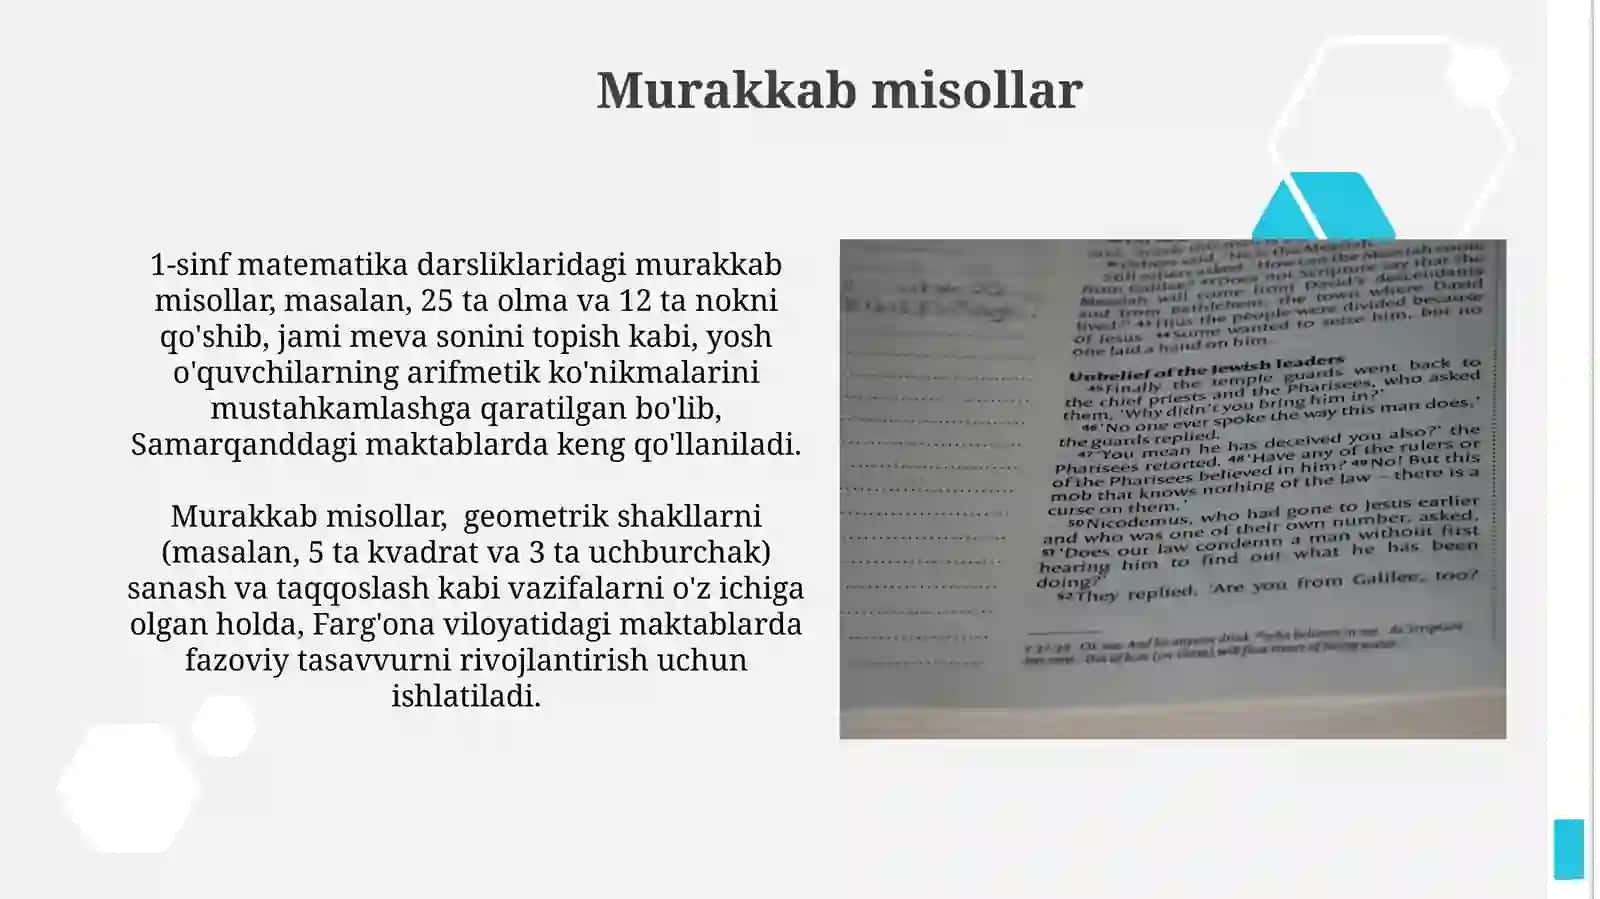 Murakkab misollar
1-sinf matematika darsliklaridagi murakkab
misollar, masalan, 25 ta olma va 12 ta nokni
qo'shib, jami meva sonini topish kabi, yosh
o'quvchilarning arifmetik ko'nikmalarini
mustahkamlashga qaratilgan bo'lib,
Samarqanddagi maktablarda keng qo'llaniladi.
Murakkab misollar, geometrik shakllarni
(masalan, 5 ta kvadrat va 3 ta uchburchak)
sanash va taqqoslash kabi vazifalarni o'z ichiga
olgan holda, Farg'ona viloyatidagi maktablarda
fazoviy tasavvurni rivojlantirish uchun
ishlatiladi.
Still others asked, 'How can the Messiah come
from Galilee? 42 Does not Scripture say that the
Messiah will come from David's descendants
and from Bethlehem, the town where David
lived?' 43 Thus the people were divided because
of Jesus. 44 Some wanted to seize him, but no
one laid a hand on him.
Unbelief of the Jewish leaders
45 Finally the temple guards went back to
the chief priests and the Pharisees, who asked
them, 'Why didn't you bring him in?'
46 'No one ever spoke the way this man does,'
the guards replied.
47 'You mean he has deceived you also?' the
Pharisees retorted. 48 'Have any of the rulers or
of the Pharisees believed in him? 49 No! But this
mob that knows nothing of the law – there is a
curse on them.'
50 Nicodemus, who had gone to Jesus earlier
and who was one of their own number, asked,
51 'Does our law condemn a man without first
hearing him to find out what he has been
doing?'
52 They replied, 'Are you from Galilee, too?